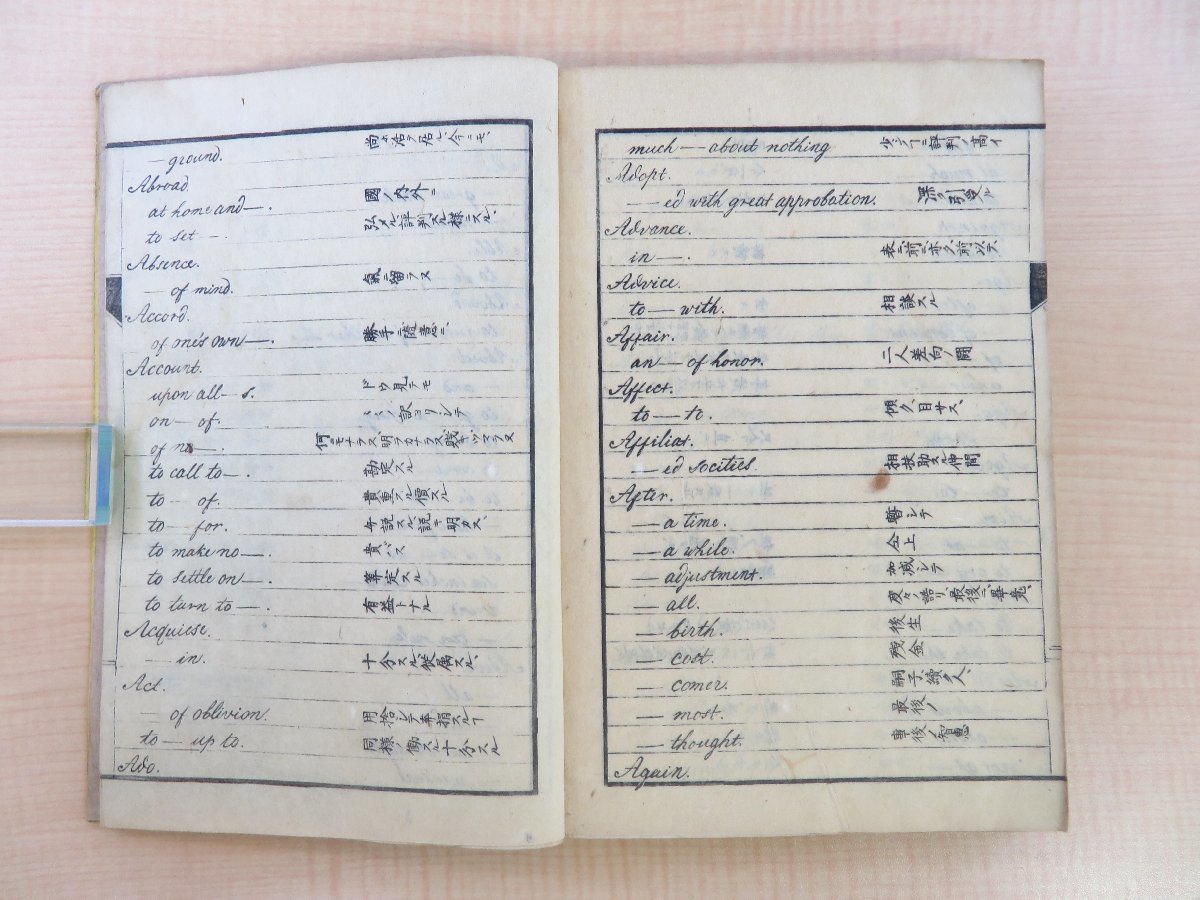 — ground. 尚ホ活テ居ル、今ニモ、
Abroad
at home and —. 國ノ内外ニ
to set —. 弘メル、評判スル様ニスル、
Absence.
— of mind. 氣ニ留ラヌ
Accord.
of one's own —. 勝手ニ随意ニ
Account.
upon all — s. ドウ見テモ
on — of. ノ訳ヨリシテ
of no —. 何ニモナラヌ、明ラカナラヌ、賤キツマラヌ
to call to —. 勘定スル
to — of. 貴重スル、價スル、
to — for. 説スル、説キ明カス、
to make no —.
to settle on —. 算定スル
to turn to —. 有益トナル
Acquiese.
— in. 十分スル、従属スル、
Act.
— of oblivion. 用捨シテ弃捐スルヿ
to — up to. 同様ノ働スル、十分スル
Ado.
much — about nothing 少シノヿニ評判ノ高イ
Adopt.
— ed with great approbation. 深ク引受ル
Advance.
in —. 表ニ、前ニ、ホク、前以テ、
Advice.
to — with. 相談スル
Affair.
an — of honor. 二人差向ノ鬪
Affect.
to — to. 傾ク、目サス、
Affiliat.
— ed socities. 相扶助スル仲間
After.
— a time. 暫シテ
— a while. 仝上
— adjustment. 加减シテ
— all. 度々ノ詰リ、最後ニ、畢竟、
— birth. 後生
— cost. 残金
— comer. 嗣子、續ク人、
— most. 最後ノ
— thought. 事後ノ智惠
Again.